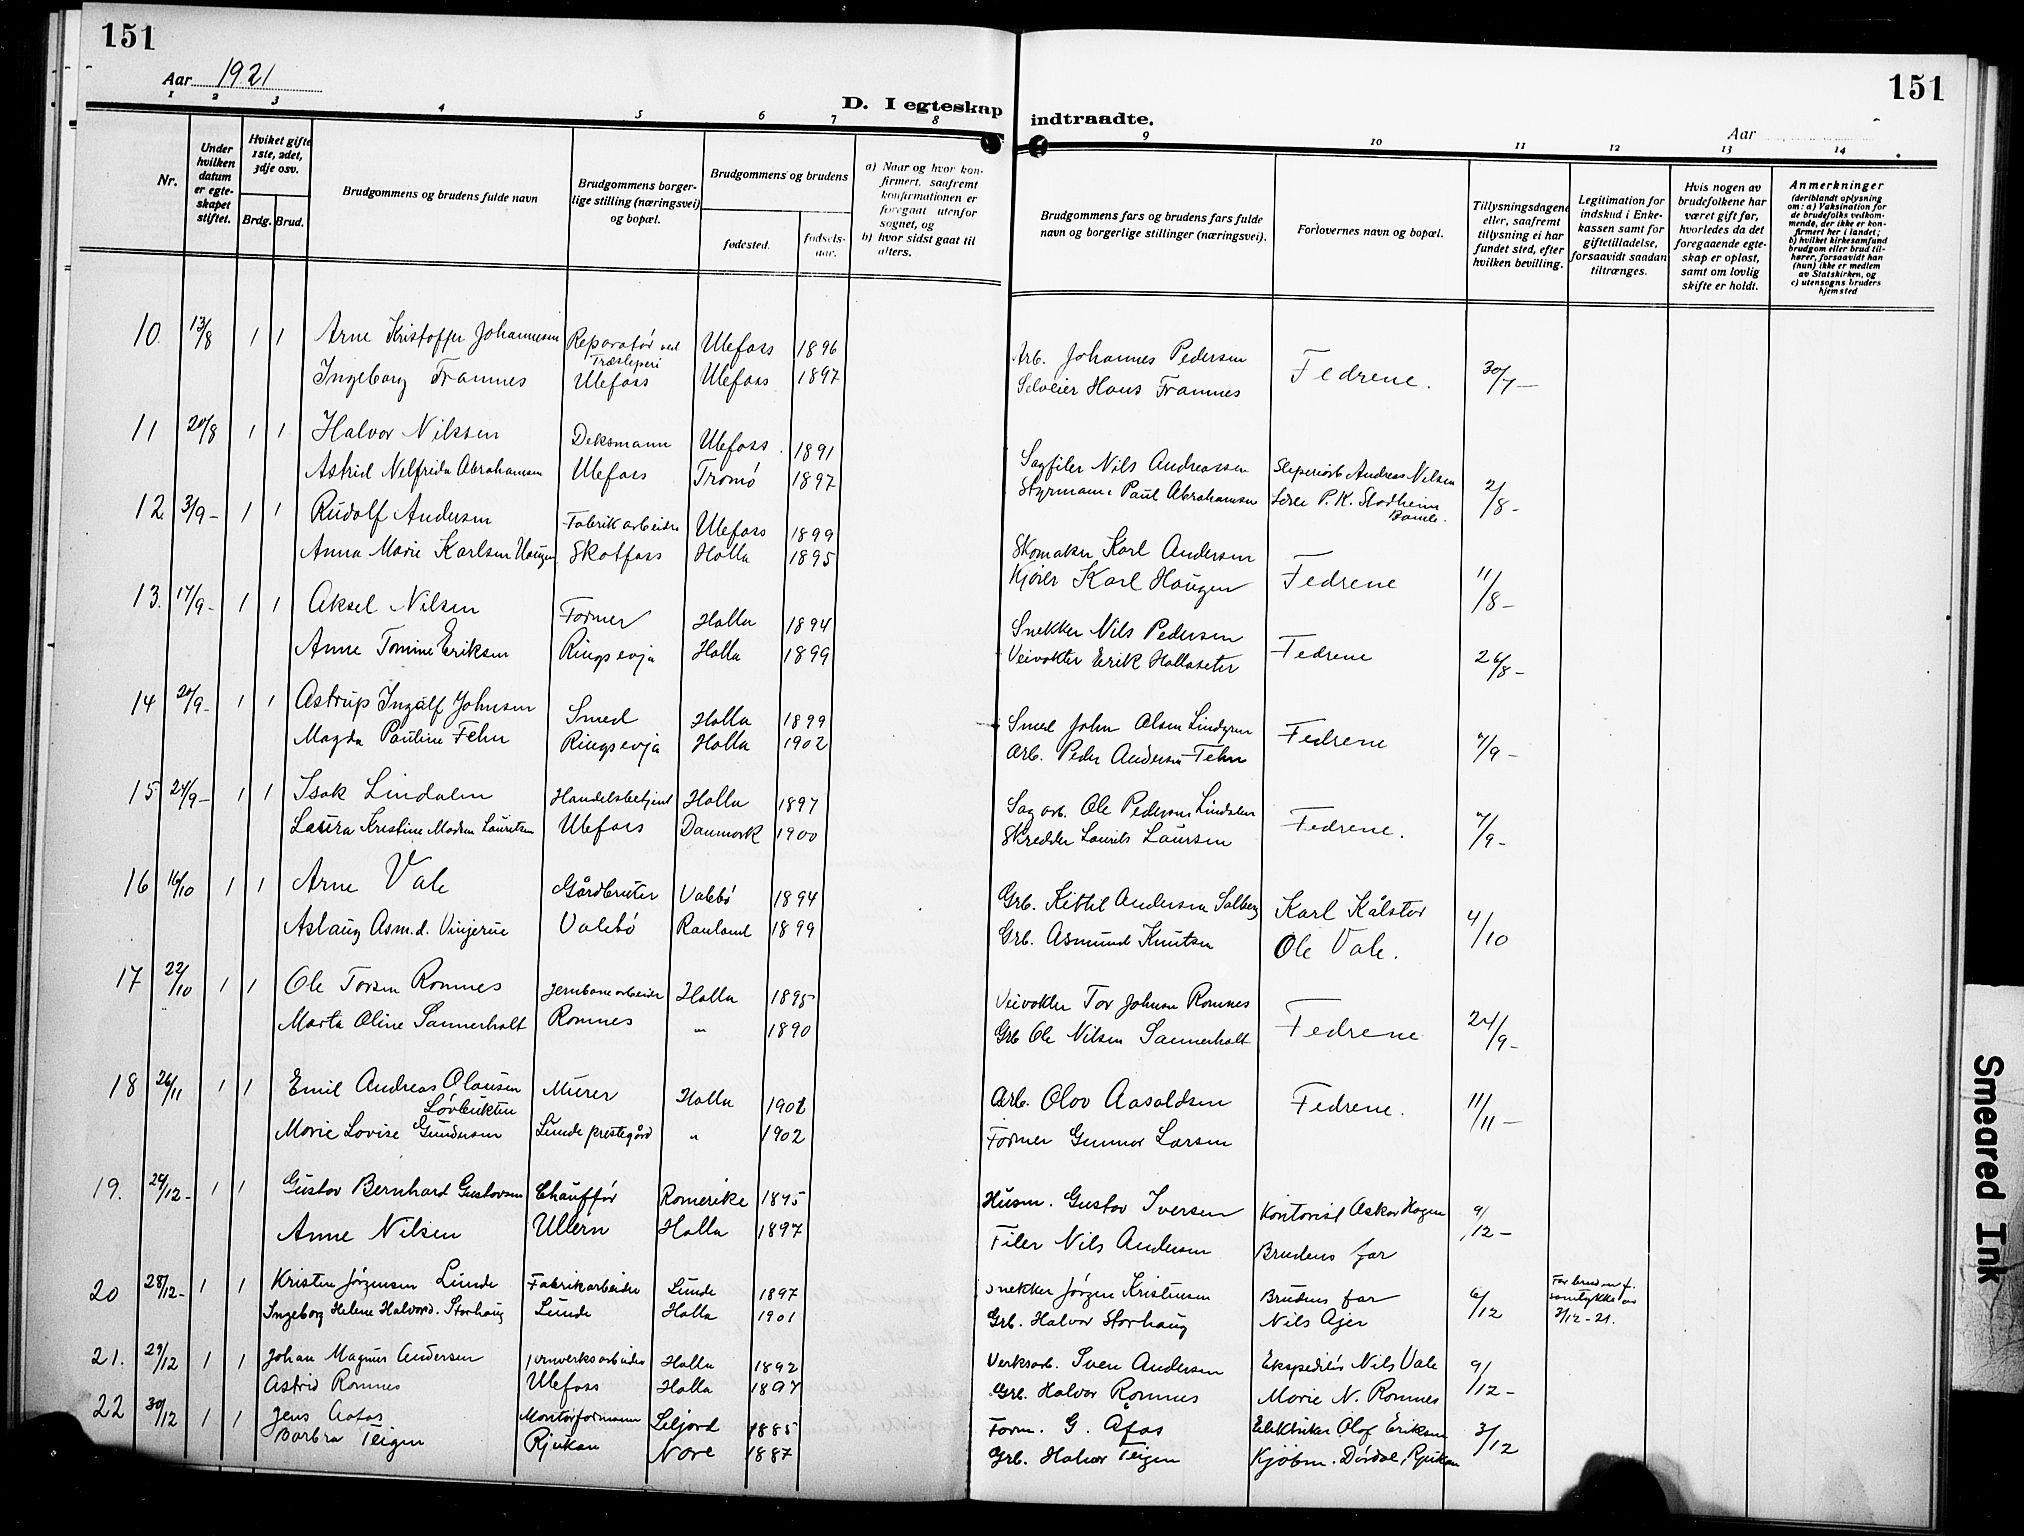 151
151
Aar 1921
Aar
D. I egteskap indtraadte.
1 2 3 4 5 6 7 8 9 10 11 12 13 14
Nr.
Under hvilken datum er egteskapet stiftet.
Hvilket gifte 1ste, 2det, 3dje osv.
Brdg. Brud.
Brudgommens og brudens fulde navn
Brudgommens borgerlige stilling (næringsvei) og bopæl.
Brudgommens og brudens
fødested. fødselsaar.
a) Naar og hvor konfirmert, saafremt konfirmationen er foregaat utenfor sognet, og
b) hvor sidst gaat til alters.
Brudgommens fars og brudens fars fulde navn og borgerlige stillinger (næringsvei).
Forlovernes navn og bopæl.
Tillysningsdagene eller, saafremt tillysning ei har fundet sted, efter hvilken bevilling.
Legitimation for indskud i Enkekassen samt for giftetilladelse, forsaavidt saadan tiltrænges.
Hvis nogen av brudefolkene har været gift før, hvorledes da det foregaaende egteskap er opløst, samt om lovlig skifte er holdt.
Anmerkninger (deriblandt oplysning om: a) Vaksination for de brudefolks vedkommende, der ikke er konfirmert her i landet; b) hvilket kirkesamfund brudgom eller brud tilhører, forsaavidt han (hun) ikke er medlem av Statskirken, og c) utensogns bruders hjemsted
10. 13/8 1 1 Arne Kristoffer Johannesen Reparatør ved Træsliperi Ulefoss 1896 Arb. Johannes Pedersen Fedrene. 30/7 -
Ingeborg Framnes Ulefoss Ulefoss 1897 Selveier Hans Framnes
11 20/8 1 1 Halvor Nilsen Deksmann Ulefoss. 1891 Sagfiler Nils Andreassen Sliperiarb Andreas Nilsen 2/8 -
Astrid Nelfrida Abrahamsen Ulefoss Tromö 1897 Styrmann Paul Abrahamsen P. K. Stadheim Bamle.
12. 3/9 - 1 1 Rudolf Andersen Fabrikarbeider Ulefoss 1899 Skomaker Karl Andersen Fedrene 11/8 -
Anna Marie Karlsen Haugen Skotfoss Holla 1895 Kjører Karl Haugen
13. 17/9 - 1 1 Aksel Nilsen Former Holla 1894 Snekker Nils Pedersen Fedrene 26/8 -
Anne Tomine Eriksen Ringsevja Holla 1899 Veivokter Erik Hollaseter
14 20/9 - 1 1 Astrup Ingolf Johnsen Smed Holla 1899 Smed John Olsen Lindgren Fedrene 7/9 -
Magda Pauline Fehn Ringsevja Holla 1902 Arb. Peder Andersen Fehn
15 24/9 - 1 1 Isak Lindalen Handelsbetjent Holla 1897 Sagarb. Ole Pedersen Lindalen Fedrene. 7/9 -
Laura Kristine Madsen Lauritsen Ulefoss Danmark 1900 Skredder Laurits Laursen
16 16/10 1 1 Arne Vale Gårdbruker Valebö 1894 Grb. Kittil Andersen Solberg Karl Kålstor 4/10
Aslaug Asm.d. Vinjerue Valebö Rauland 1899 Grb. Asmund Knutsen Ole Vale.
17 22/10 1 1 Ole Torsen Romnes Jernbanearbeider Holla 1895 Veivokter Tor Johnsen Romnes Fedrene 24/9 -
Marta Oline Sannerholt Romnes " 1890 Grb Ole Nilsen Sannerholt
18 26/11 1 1 Emil Andreas Olausen Løvbukten Murer Holla 1902 Arb. Olov Aasoldsen Fedrene. 11/11 -
Marie Lovise Gundersen Lunde prestegård " 1902 Former Gunnar Larsen
19. 24/12 - 1 1 Gustav Bernhard Gustavsen Chauffør Romerike 1895 Husm. Gustav Iversen Kontorist Oskar Hagen 9/12 -
Anne Nilsen Ullern Holla 1897 Filer Nils Andersen Brudens far
20 28/12 - 1 1 Kristen Jörgensen Lunde Fabrikarbeider Lunde 1897 Snekker Jörgen Kristensen Brudens far 6/12 Far bruden f. samtykke av 3/12-21.
Ingeborg Helene Halvord. Storhaug Lunde Holla 1901 Grb. Halvor Storhaug Nils Ajer
21. 29/12 1 1 Johan Magnus Andersen Jernverksarbeider Holla 1892 Verksarb. Sven Andersen Ekspeditör Nils Vale 9/12 -
Astrid Romnes Ulefoss Holla 1897 Grb. Halvor Romnes Marie N. Romnes
22 30/12 1 1 Jens Aafos Montörformann Seljord 1885 Form. G. Åfos Elektriker Olof Eriksen 3/12
Barbra Teigen Rjukan Nore 1887 Grb. Halvor Teigen Kjöbm. Dördal, Rjukan
Smeared Ink